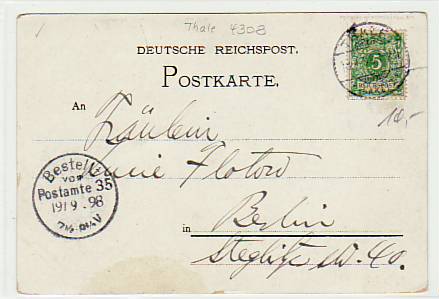 Thale 4308
DEUTSCHE REICHSPOST.
POSTKARTE.
5
An
10,-
Fräulein
Flotow
Bestellt
vom
Postamte 35
19/9.98
7½-8¼V
in Berlin
Steglitz str. 40.